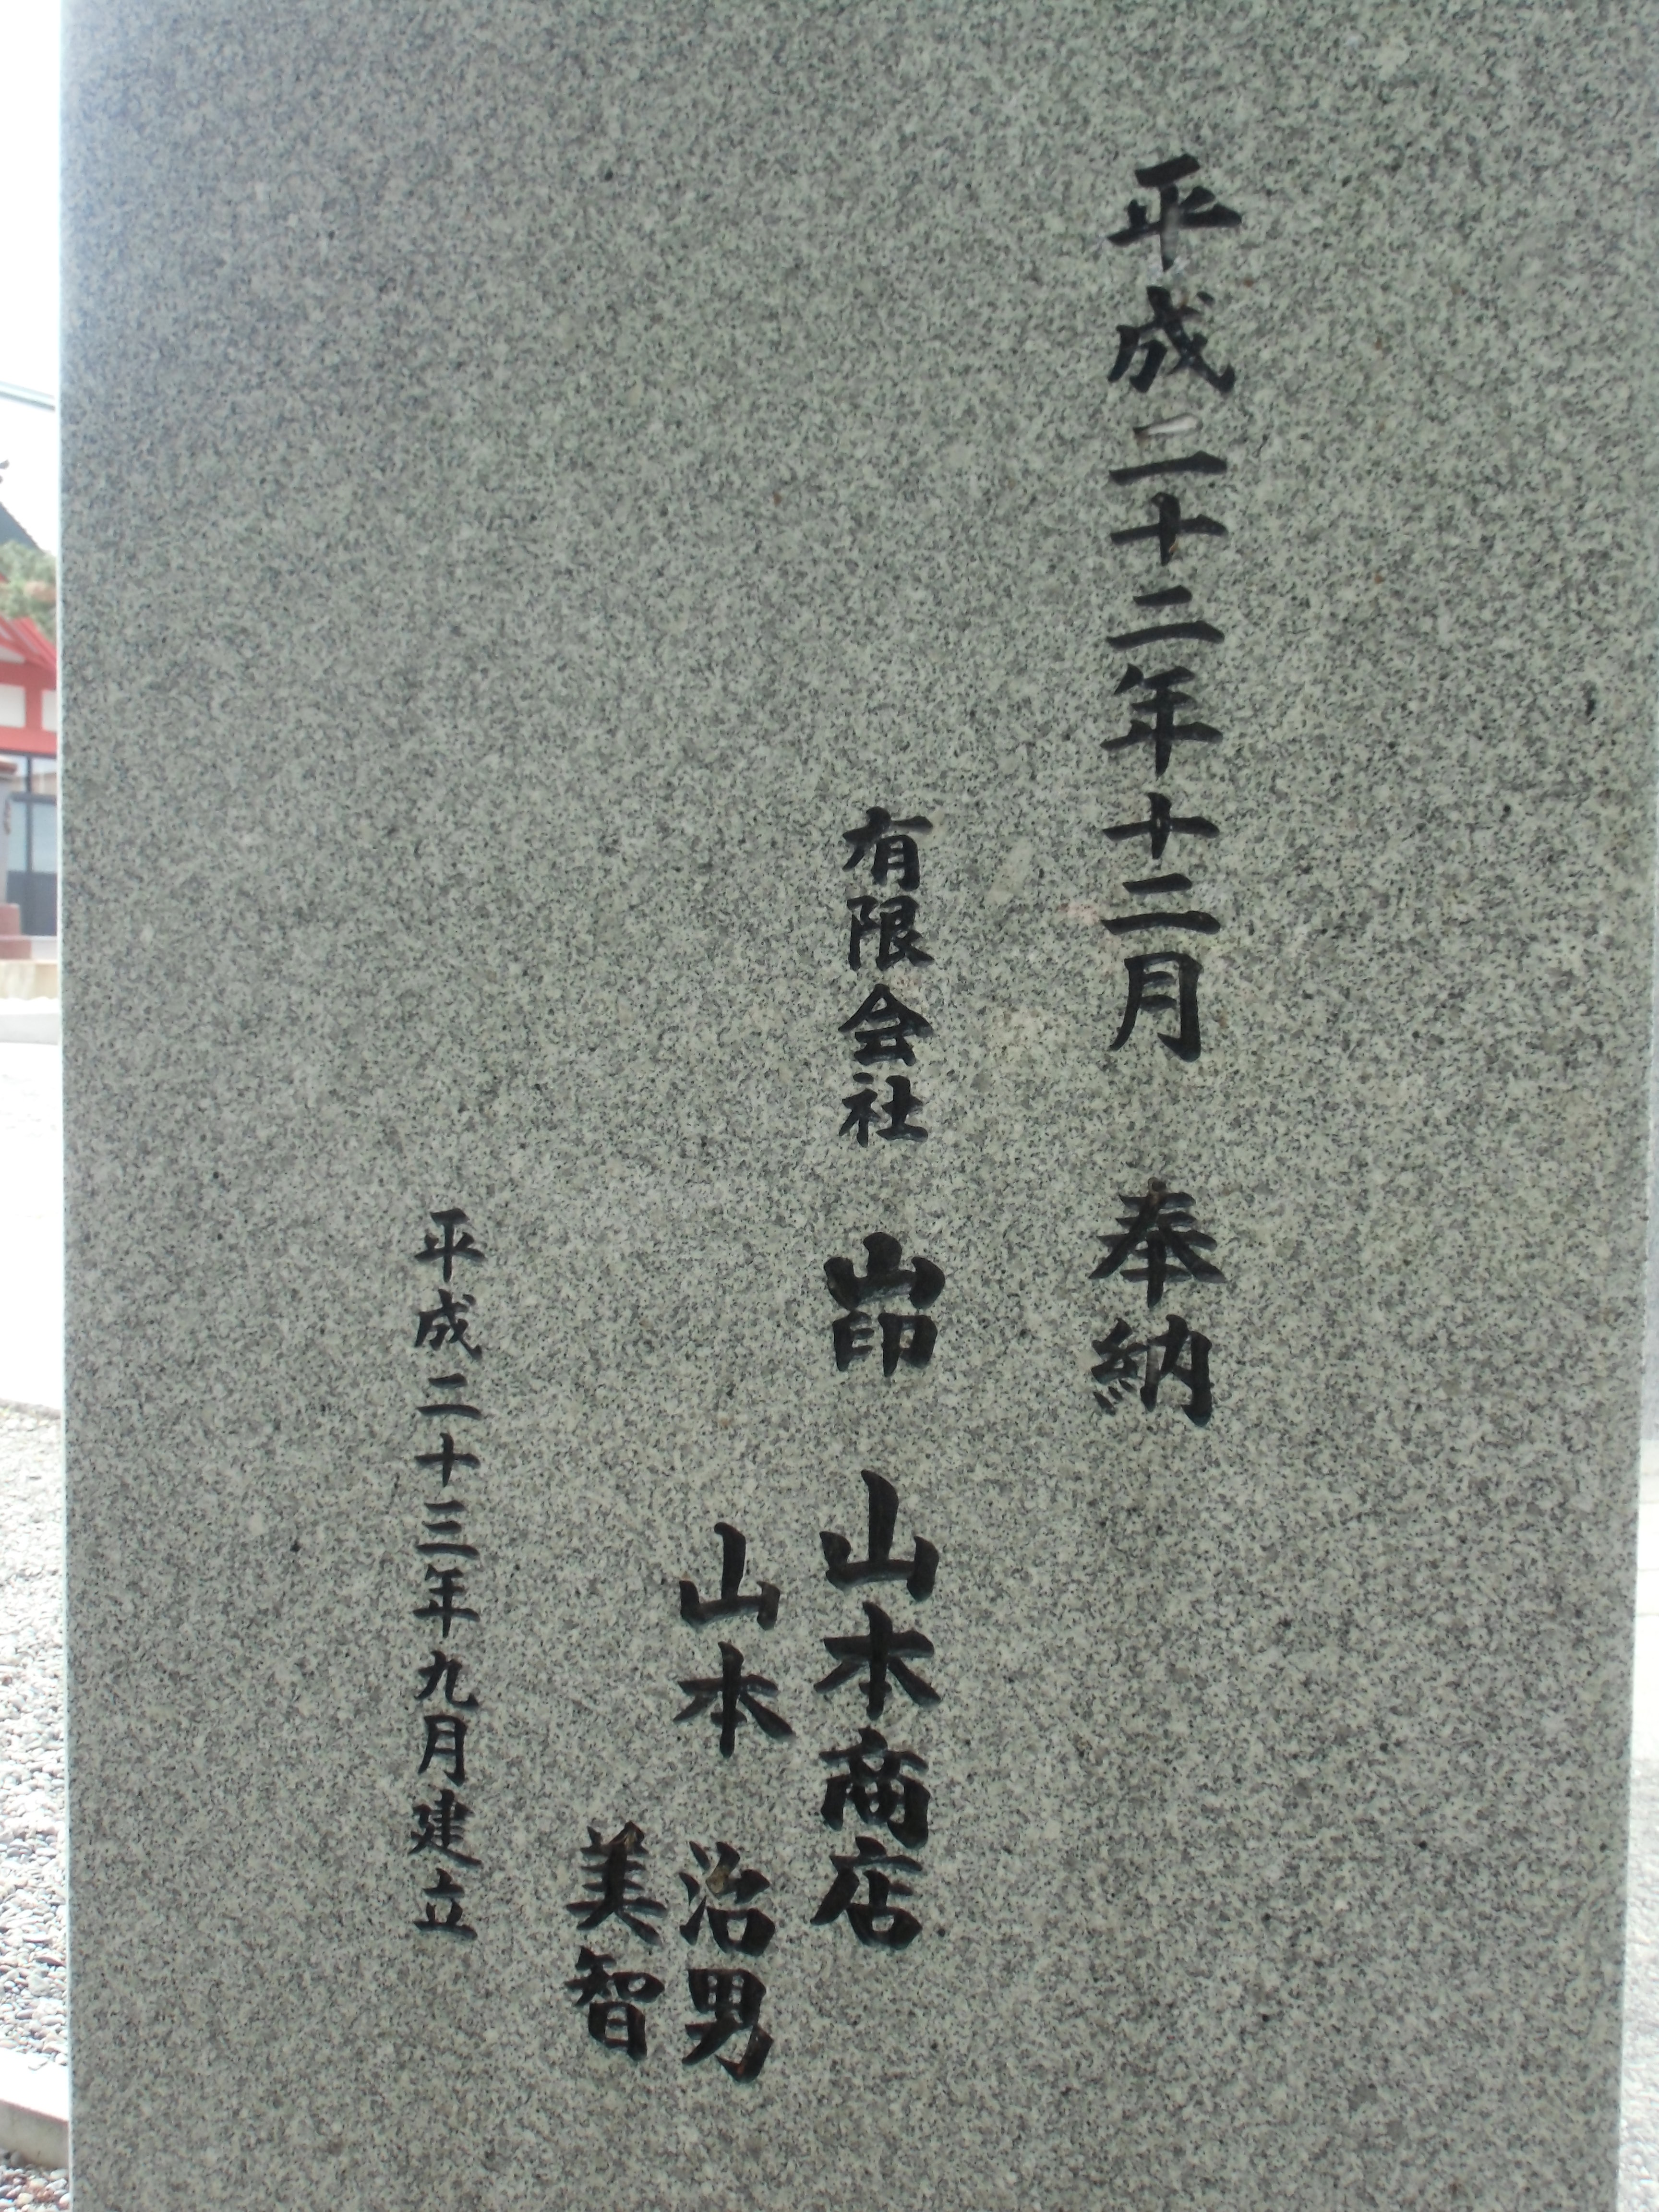 平成二十二年十二月 奉納
有限会社 山印 山本商店
山本 治男
美智
平成二十三年九月建立